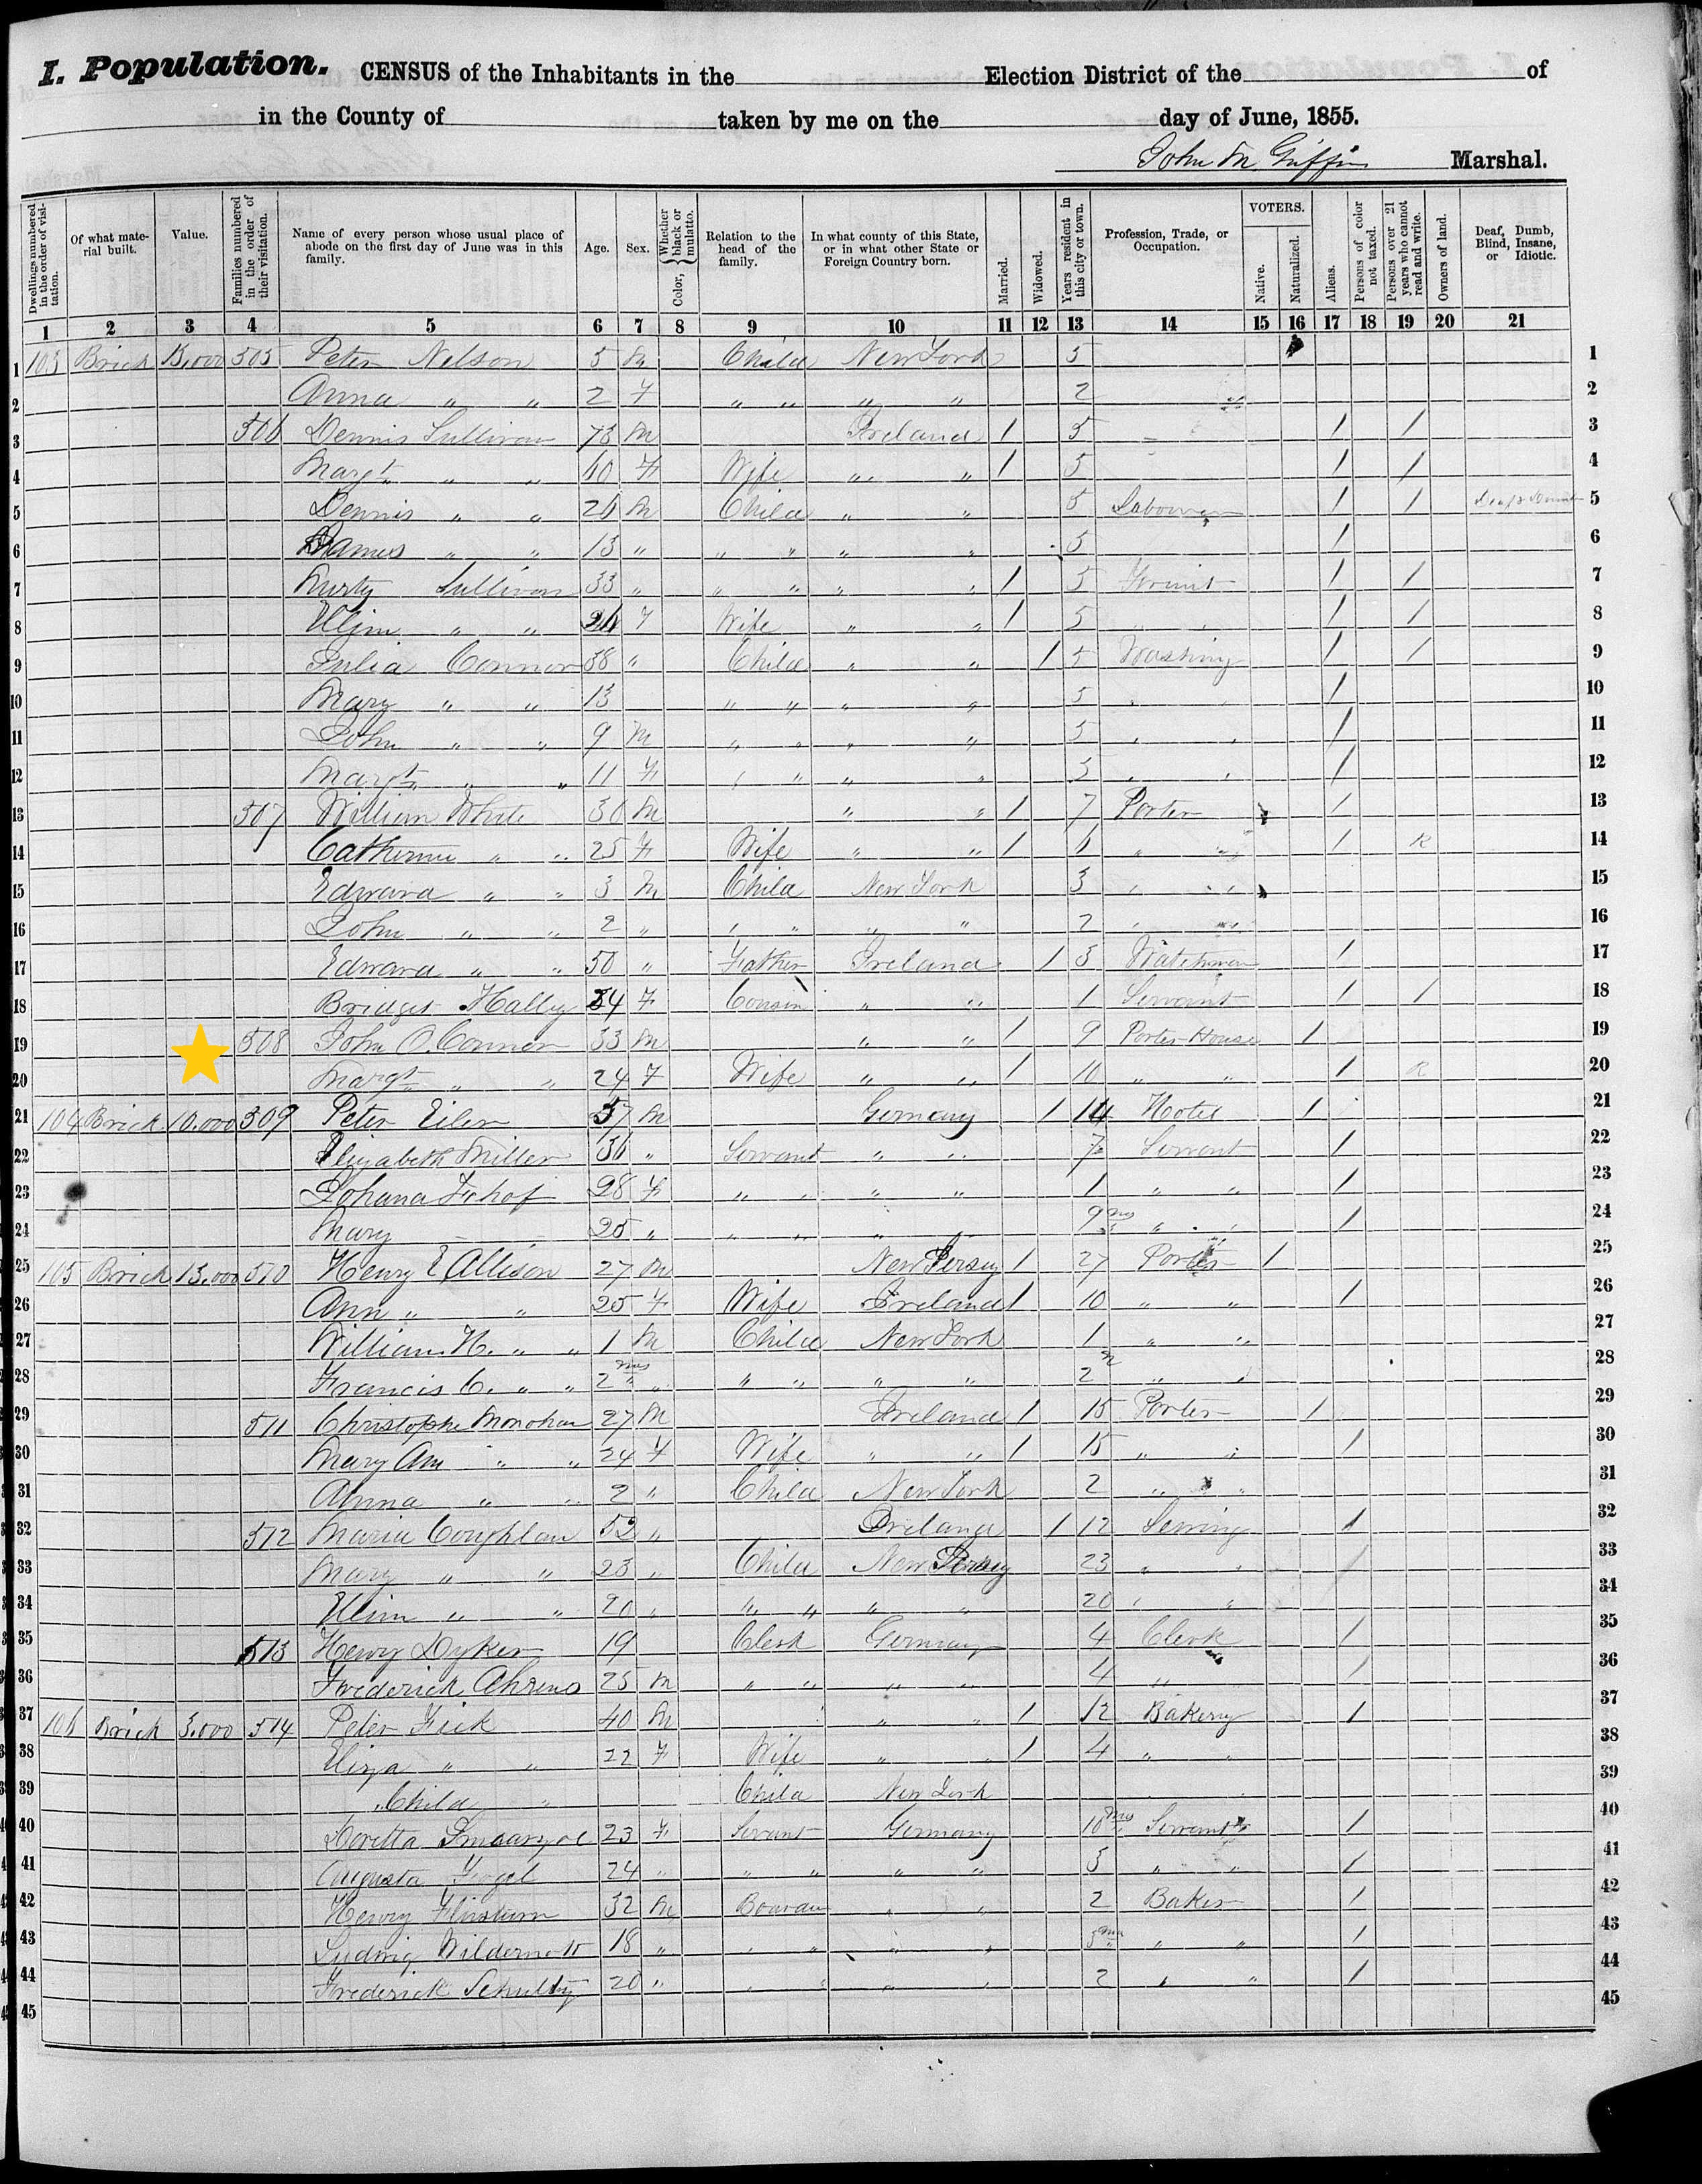 I. Population. CENSUS of the Inhabitants in the Election District of the of
in the County of taken by me on the day of June, 1855.
John M. Griffin Marshal.
Dwellings numbered in the order of visitation. Of what material built. Value. Families numbered in the order of their visitation. Name of every person whose usual place of abode on the first day of June was in this family. Age. Sex. Color, { Whether black or mulatto. Relation to the head of the family. In what county of this State, or in what other State or Foreign Country born. Married. Widowed. Years resident in this city or town. Profession, Trade, or Occupation. VOTERS. Native. Naturalized. Aliens. Persons of color not taxed. Persons over 21 years who cannot read and write. Owners of land. Deaf, Dumb, Blind, Insane, or Idiotic.
1 2 3 4 5 6 7 8 9 10 11 12 13 14 15 16 17 18 19 20 21
1 103 Brick 505 Peter Nelson 5 M Child New York 5 1
2 Anna " " 2 F " " " " 2 2
3 506 Dennis Sullivan 73 M Ireland 1 5 1 1 3
4 Margt " " 60 F Wife " " 1 5 1 1 4
5 Dennis " " 26 M Child " " 5 Labourer 1 1 Deaf & Dumb 5
6 James " " 13 " " " " " 5 1 6
7 Murty Sullivan 33 " " " " " 1 5 1 1 7
8 Ellen " " F Wife " " 1 5 1 1 8
9 Julia Connor 38 " Child " " 1 5 Washing 1 1 9
10 Mary " " 13 " " " " 5 1 10
11 John " " 9 M " " " " 5 1 11
12 Margt " " 11 F " " " " 5 1 12
13 507 William White 30 M " " 1 7 Porter 1 13
14 Catherine " " 25 F Wife " " 1 6 " " 1 R 14
15 Edward " " 3 M Child New York 3 " " 15
16 John " " 2 " " " " " 2 " " 16
17 Edward " " 50 " Father Ireland 1 3 Watchman 1 17
18 Bridget Halley 34 F Cousin " " 1 Servant 1 1 18
19 508 John O.Connor 33 M " " 1 9 Porter House 1 19
20 Margt " " 24 F Wife " " 1 10 " " 1 R 20
21 104 Brick 10.000 509 Peter Eiler 37 M Germany 1 14 Hotel 1 21
22 Elizabeth Miller 36 " Servant " " 7 Servant 1 22
23 Johana 28 F " " " " 1 " " 1 23
24 Mary 25 " " " " 9 ms " " 1 24
25 105 Brick 13.000 510 Henry E Allison 27 M New Jersey 1 27 Porter 1 25
26 Ann " " 25 F Wife Ireland 1 10 " " 1 26
27 William H. " " 1 M Child New York 1 " " 27
28 Francis C. " " 2 ms " " " " " 2 m " " 28
29 511 Christophe Monohan 27 M Ireland 1 15 Porter 1 29
30 Mary Ann " " 24 F Wife " " 1 15 " " 1 30
31 Anna " " 2 " Child New York 2 " " 31
32 512 Maria Coughlan 52 " Ireland 1 12 Sewing 1 32
33 Mary " " 23 " Child New Jersey 23 " " 1 33
34 Ellen " " 20 " " " " " 20 " " 34
35 513 Henry Dyker 19 Clerk Germany 4 Clerk 1 35
36 Frederick Ahrens 25 M " " " " 4 " 1 36
37 106 Brick 3.000 514 Peter Fick 40 M " " 1 12 Bakery 1 37
38 Eliza " " 22 F Wife " " 1 4 " " 38
39 Child " Child New York 39
40 Doretta 23 F Servant Germany 10 ms Servant 1 40
41 Augusta 24 " " " " " 3 " " 1 41
42 Henry 32 M " " 2 Baker 1 42
43 Ludwig 18 " " " " " " " 1 43
44 Frederick Schultz 20 " " " " " 2 " " 1 44
45 45